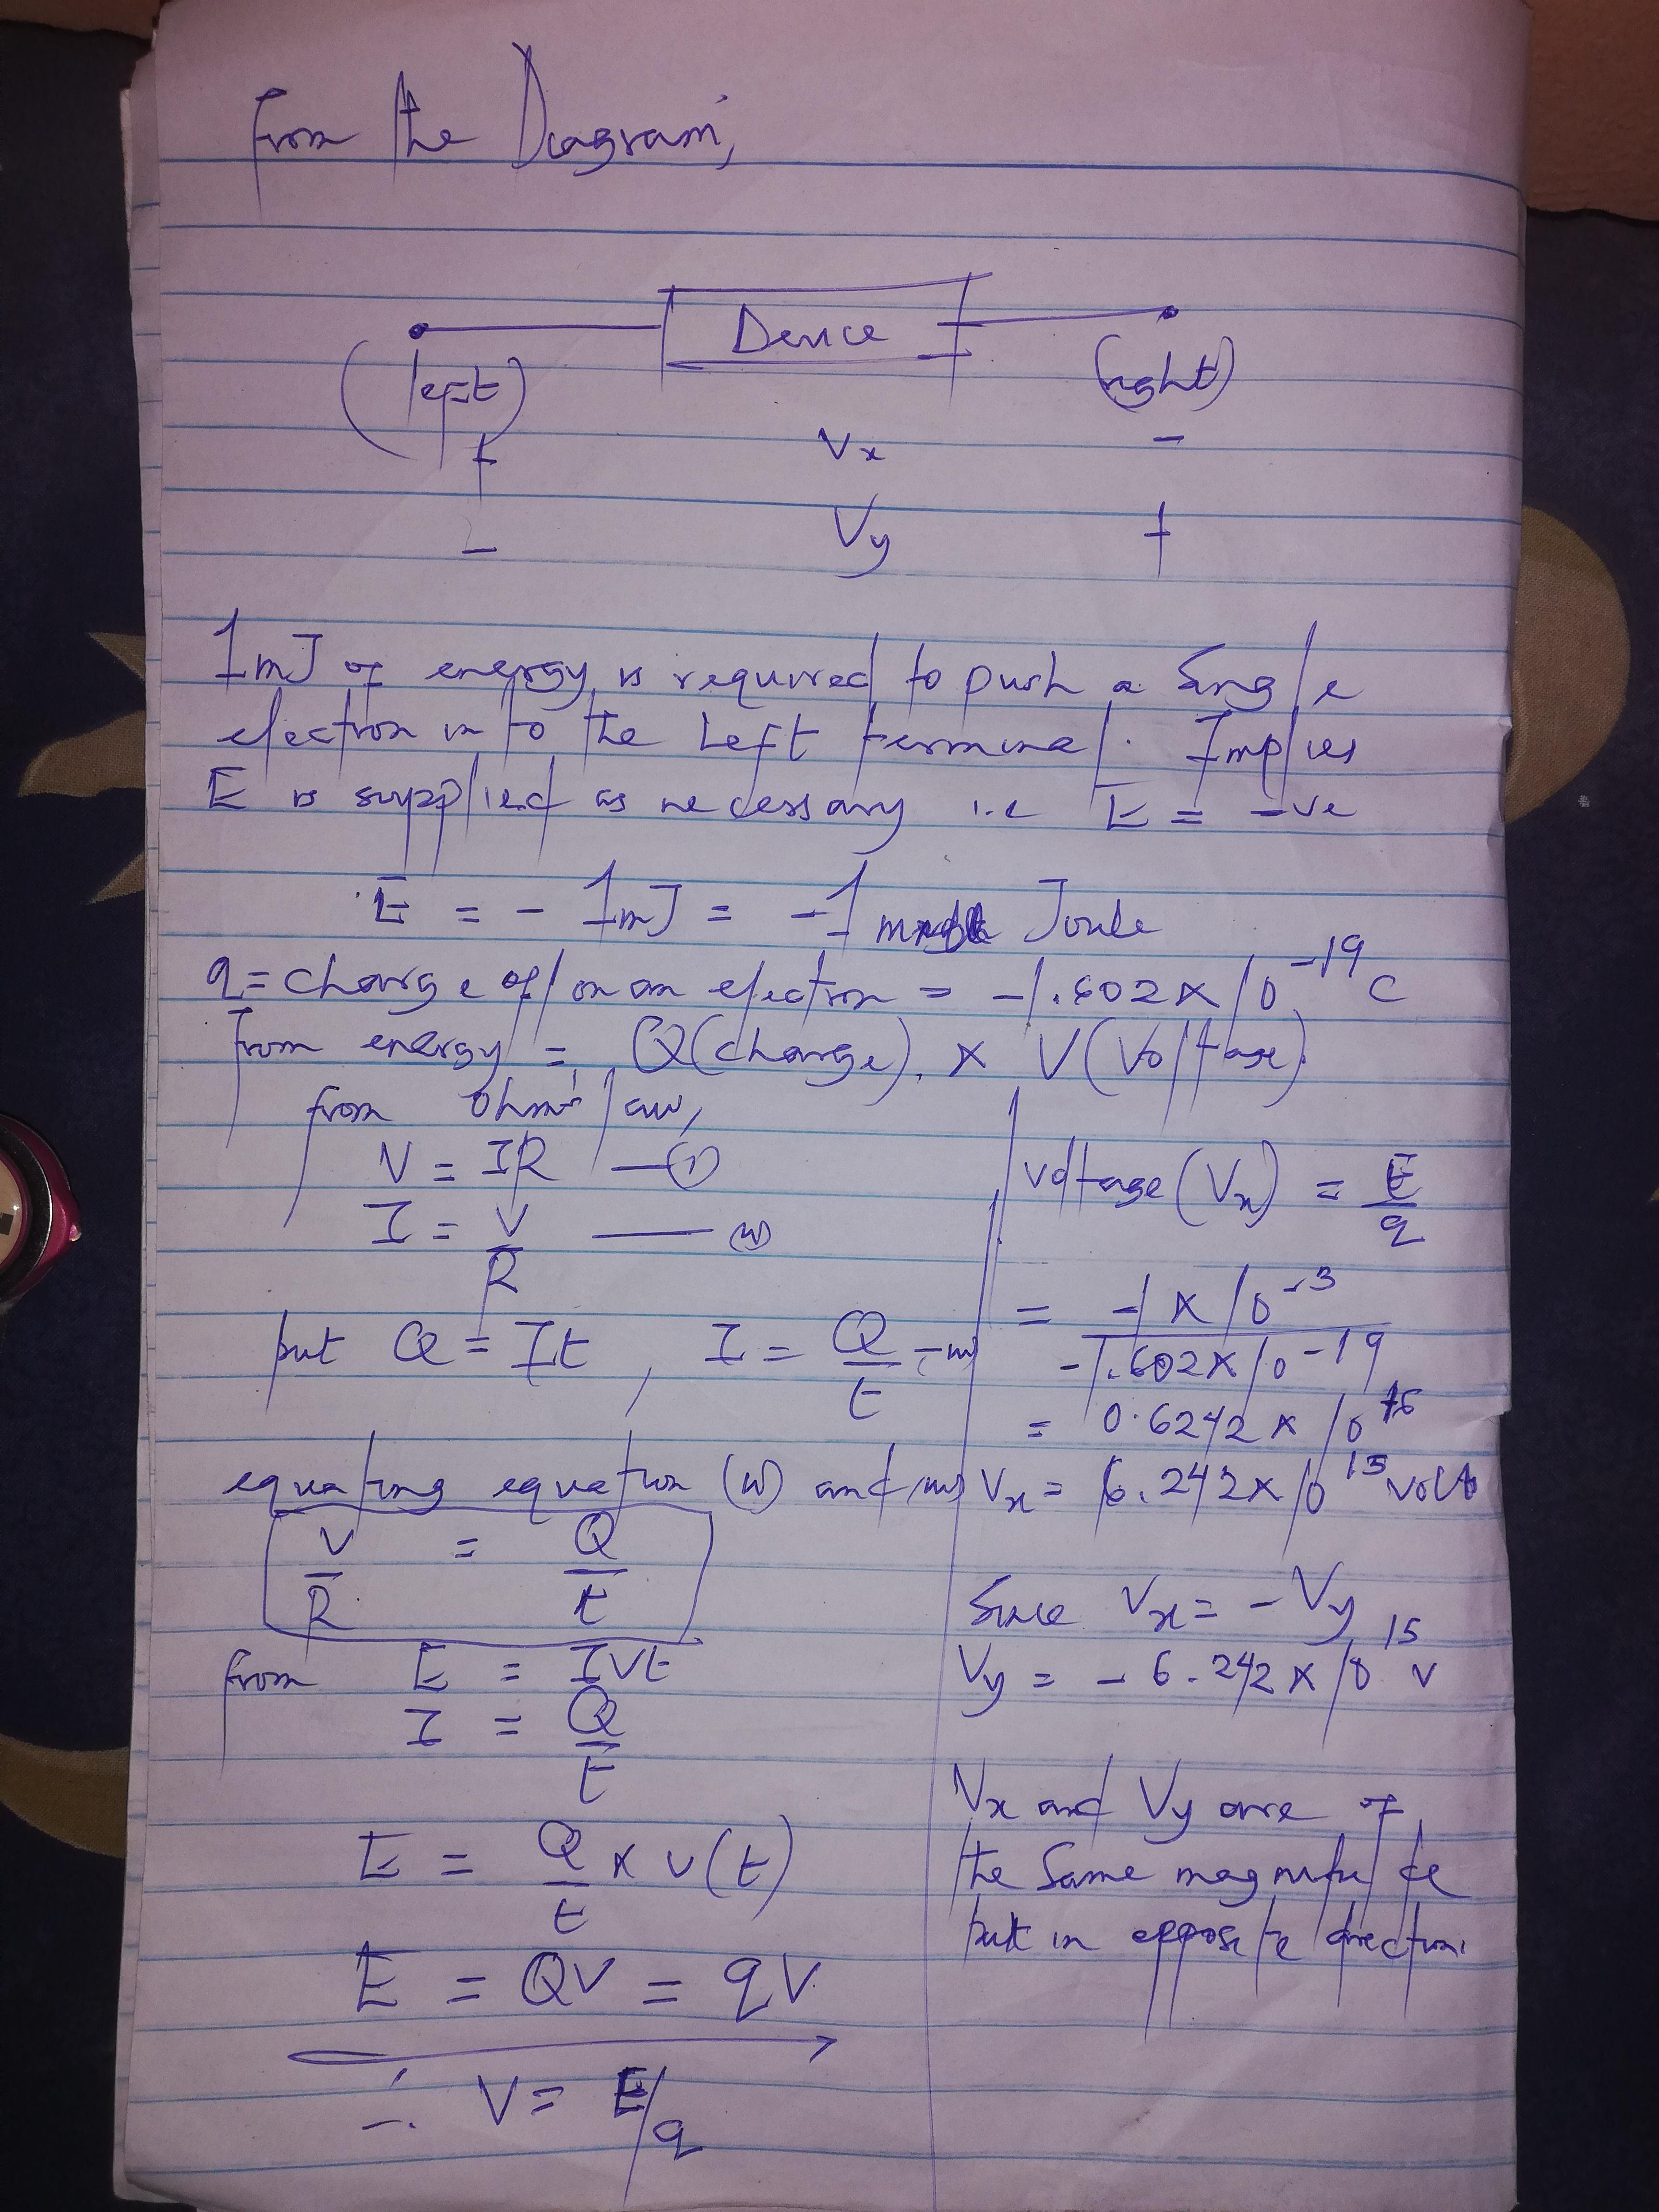 From the Diagram,
Device
(left) (right)
+ Vx -
- Vy +
1mJ of energy is required to push a single
electron in to the Left terminal. Implies
E is supplied as necessary i.e E = -ve
E = - 1mJ = -1 Joule
q = charge of/on an electron = -1.602 x 10^-19 C
From energy = Q(charge). x V(Voltage).
from ohm's law,
V = IR — (i)
I = V/R — (ii)
but Q = It, I = Q/t — (iii)
equating equation (ii) and (iii)
V/R = Q/t
from E = IVt
I = Q/t
E = Q/t x v(t)
E = QV = qV
∴ V = E/q
Voltage (Vx) = E/q
= -1 x 10^-3 / -1.602 x 10^-19
= 0.6242 x 10^16
Vx = 6.242 x 10^15 volts
Since Vx = - Vy
Vy = - 6.242 x 10^15 v
Vx and Vy are of
the same magnitude
but in opposite direction.